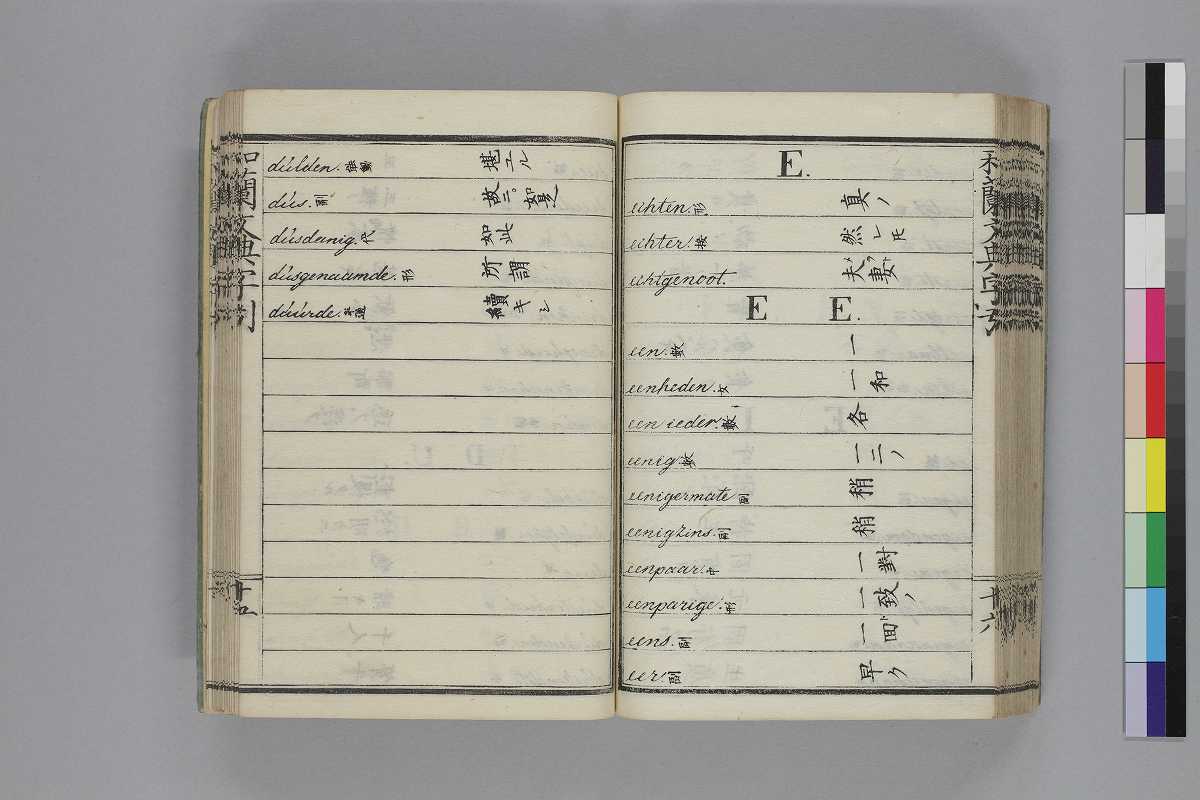 dulden. 堪ユル
dus. 副 故ニ。如是
dusdanig. 代 如此
dusgenaamde. 形 所謂
duurde. 續キシ
E.
echten. 形 真ノ
echter. 接 然レ𪜈
echtgenoot. 夫妻
E E.
een. 數 一
eenheden. 女 一和
een ieder. 數 各
eenig. 數 一二ノ
eenigermate 副 稍
eenigzins. 副 稍
eenpaar. 中 一對
eenparige. 形 一致ノ
eens. 副 一面
eer. 副 早ク
十五
十六